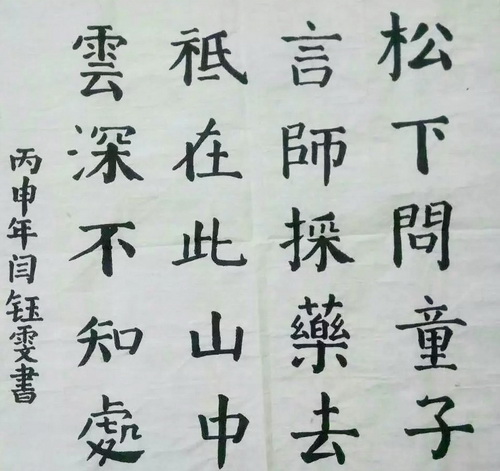 松下問童子
言師採藥去
祗在此山中
雲深不知處
丙申年闫钰雯書